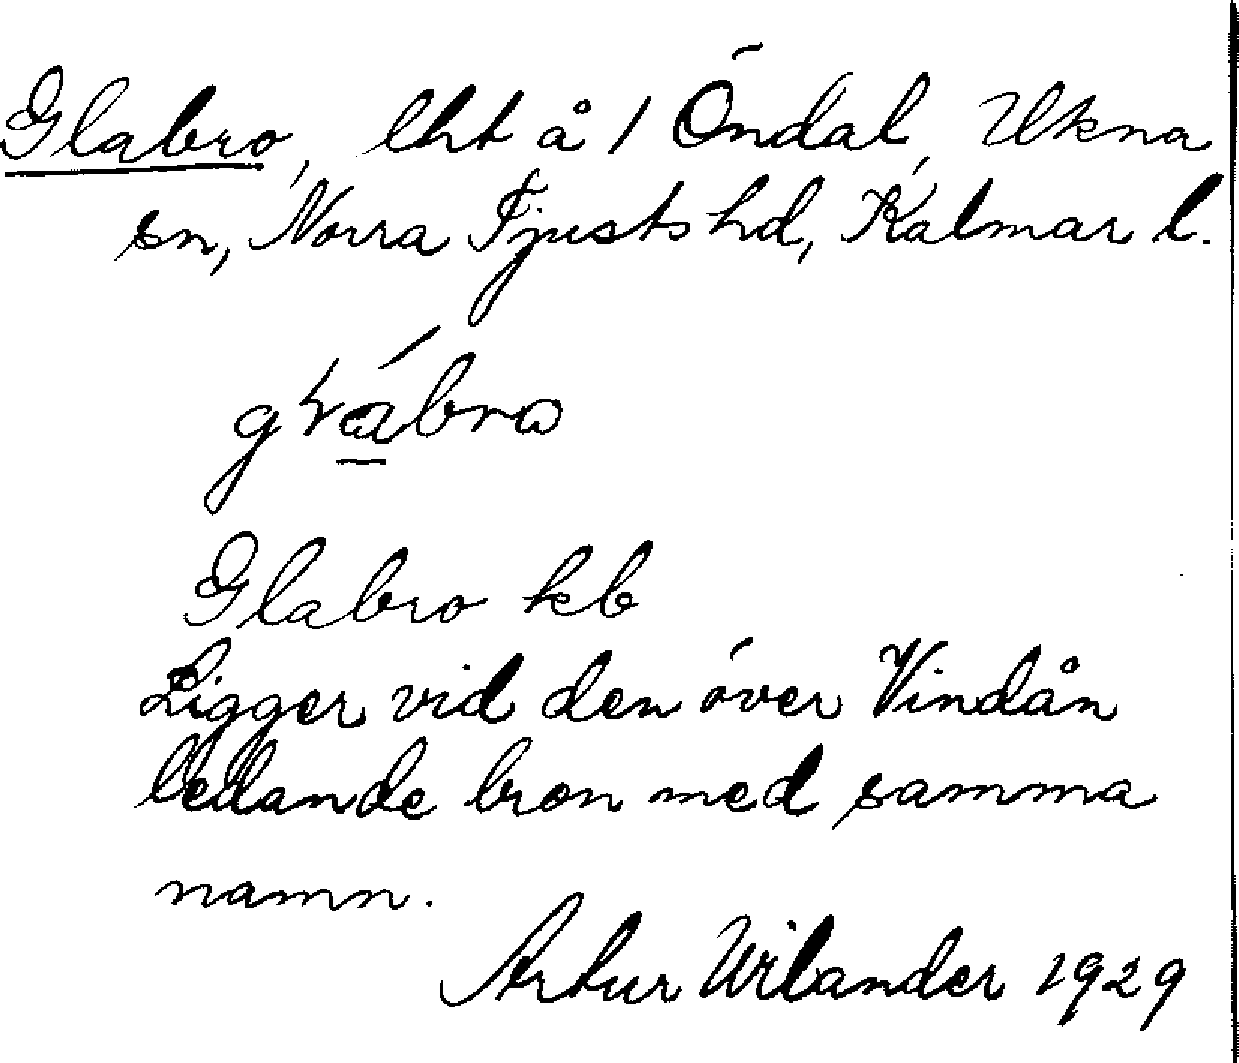 Glabro, lht å 1 Öndal, Ukna
sn, Norra Tjusts hd, Kalmar l.
Glabro kb
Ligger vid den över Vindån
ledande bron med samma
namn.
Artur Wilander 1929